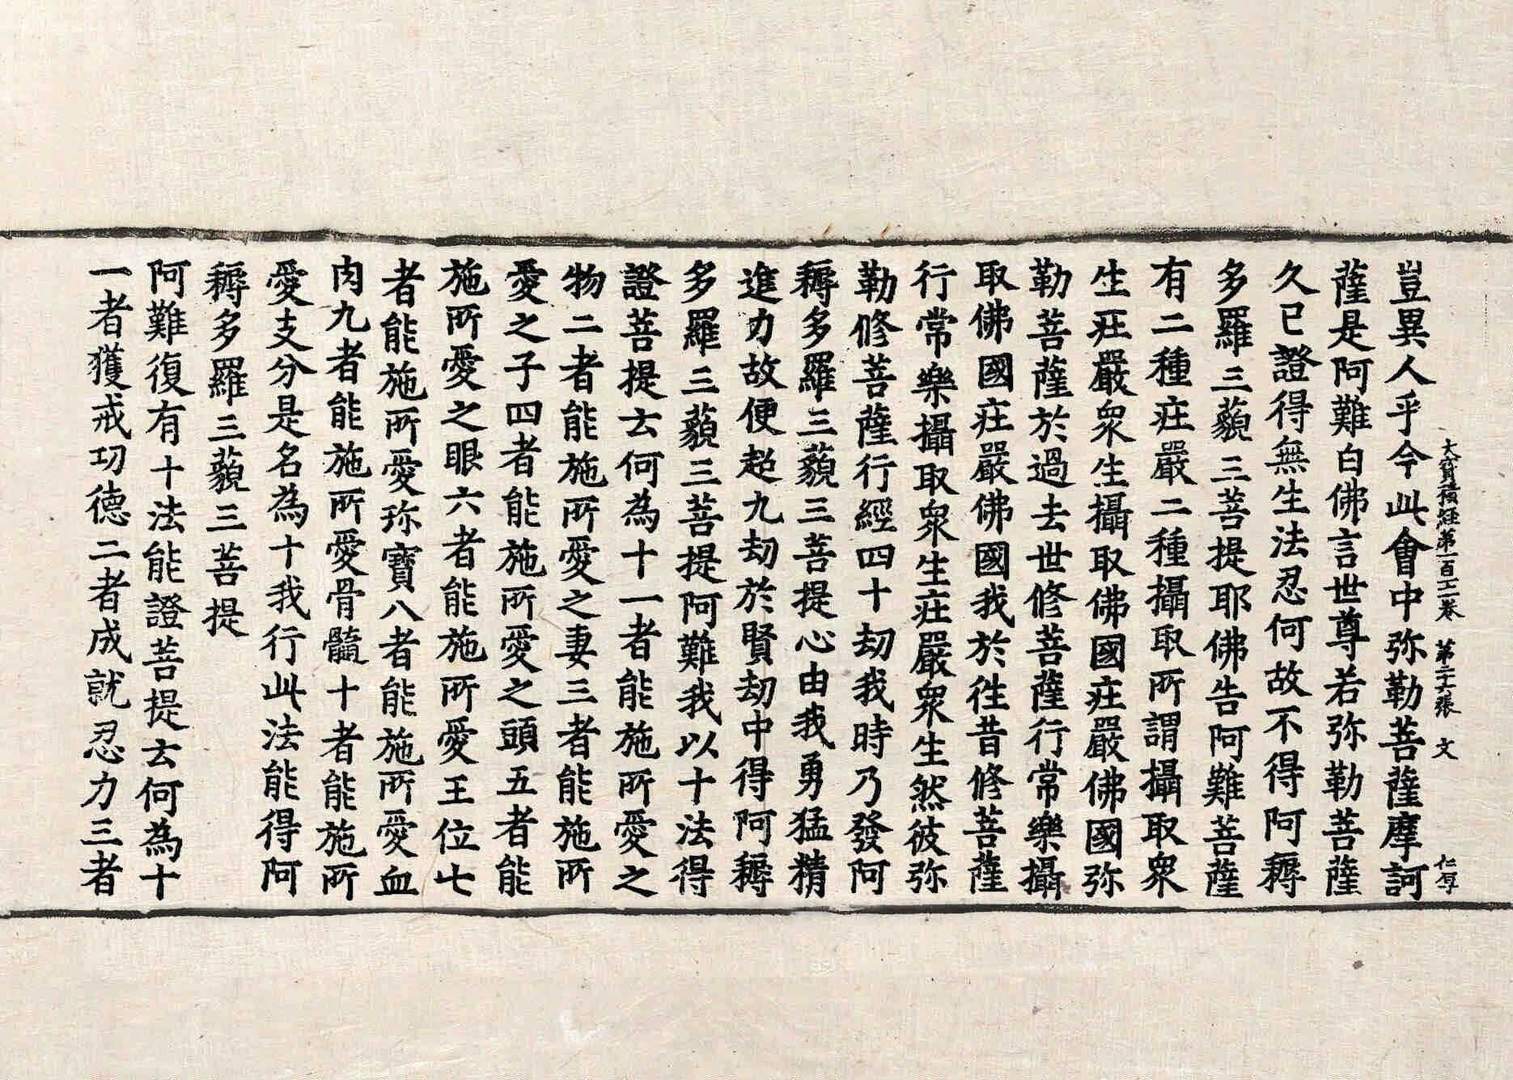 大寶積經第一百十一卷 第二十六張 文 仁厚
豈異人乎今此會中弥勒菩薩摩訶
薩是阿難白佛言世尊若弥勒菩薩
久已證得無生法忍何故不得阿耨
多羅三藐三菩提耶佛告阿難菩薩
有二種庄嚴二種攝取所謂攝取衆
生庄嚴衆生攝取佛國庄嚴佛國弥
勒菩薩於過去世修菩薩行常樂攝
取佛國庄嚴佛國我於往昔修菩薩
行常樂攝取衆生庄嚴衆生然彼弥
勒修菩薩行經四十劫我時乃發阿
耨多羅三藐三菩提心由我勇猛精
進力故便超九劫於賢劫中得阿耨
多羅三藐三菩提阿難我以十法得
證菩提云何為十一者能施所愛之
物二者能施所愛之妻三者能施所
愛之子四者能施所愛之頭五者能
施所愛之眼六者能施所愛王位七
者能施所愛珎寶八者能施所愛血
肉九者能施所愛骨髓十者能施所
愛支分是名為十我行此法能得阿
耨多羅三藐三菩提
阿難復有十法能證菩提云何為十
一者獲戒功德二者成就忍力三者